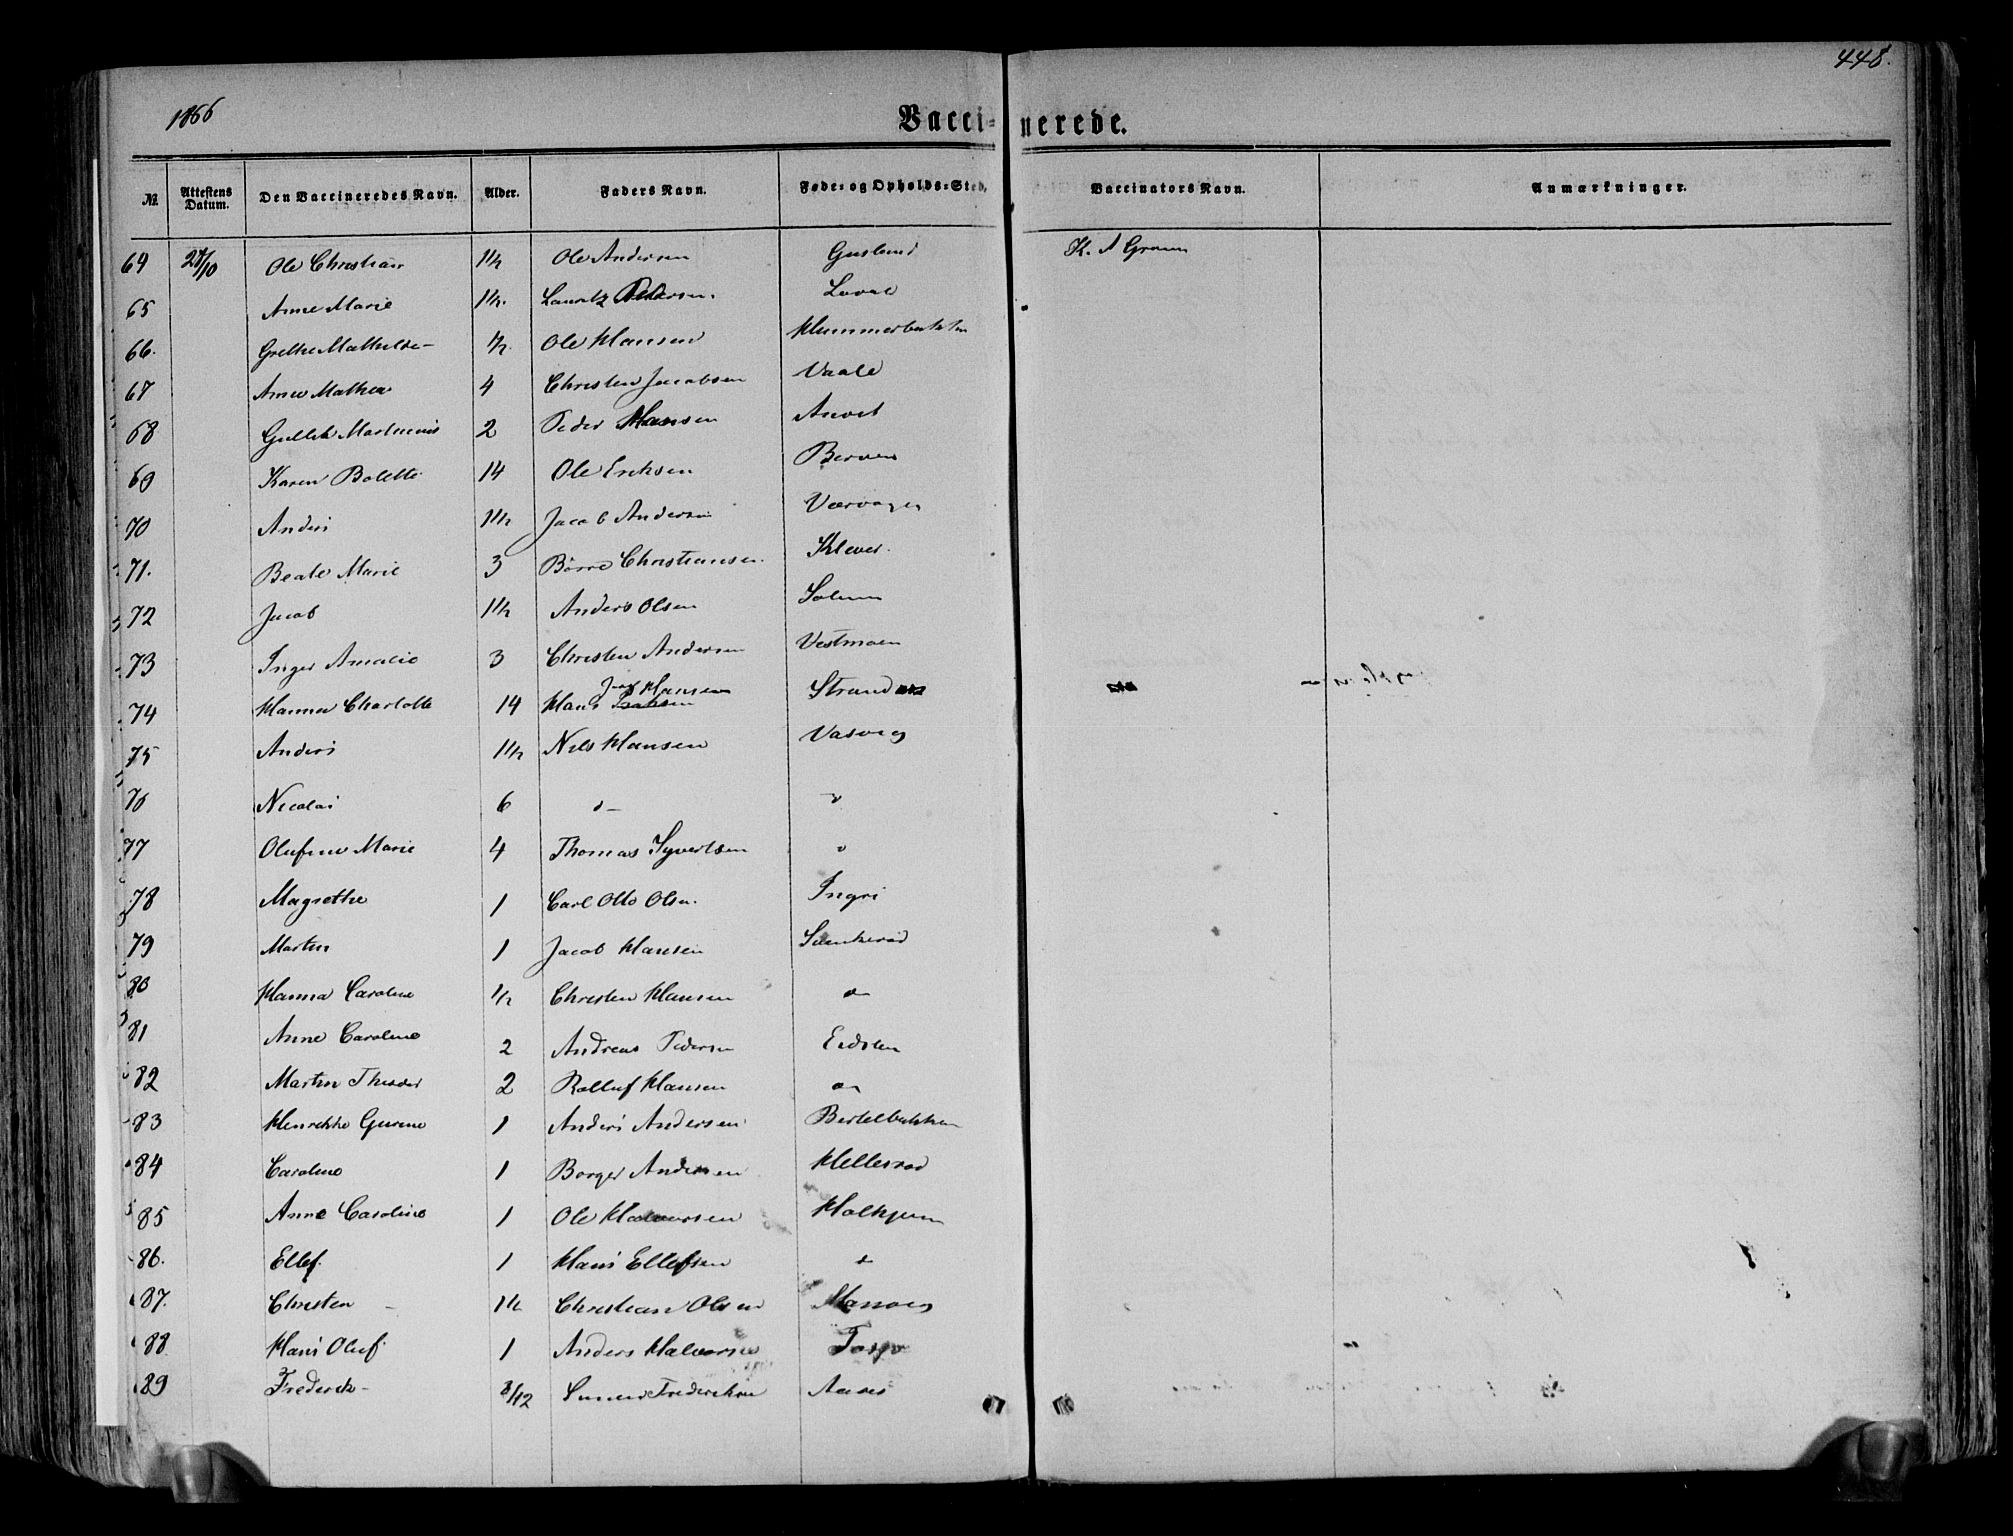 448.
1866
Vacci-nerede.
№ Attestens Datum. Den Vaccineredes Navn. Alder. Faders Navn. Føde- og Opholds-Sted. Vaccinators Navn. Anmærkninger.
64 24/10 Ole Christian 1½ Ole Andersen K. A
65 Anne Marie 1½. Lauritz Pedersen.
66. Grethe Mathilde ½ Ole Hansen Hummerbakken
67 Anne Mathea 4 Christen Jacobsen Vaale
68 2 Peder Hansen
69 Karen Bolette 14 Ole Eriksen
70 Anders 1½ Jacob Andersen
71. Beate Marie 3 Børre Christiansen. Klever.
72 Jacob 1½ Anders Olsen Solum
73 Inger Amalie 3 Christen Andersen Vestmoen
74 Hanna Charlotte 14 Hans Hansen Strand
75 Anders 1½ Nils Hansen Vasvig
76 Nicolai 6
77 Olufine Marie 4 Thomas Syvertsen
78 Magrethe 1 Carl Otto Olsen Ingri
79 Martin 1 Jacob Hansen
80 Hanna Caroline ½ Christen Hansen
81 Anne Caroline 2 Andreas Pedersen Eidsten
82 Martin Theodor 2 Rolluf Hansen
83 Henrikke Gurine 1 Anders Andersen Bertelbakken
84 Caroline 1 Borger Andersen Hellerød
85 Anne Caroline 1 Ole Halvorsen
86. Ellef. 1 Hans Ellefsen
87. Christen 1½ Christian Olsen
88 Hans Oluf 1 Anders Halvorsen
89 Frederik 8/12 Frederiksen